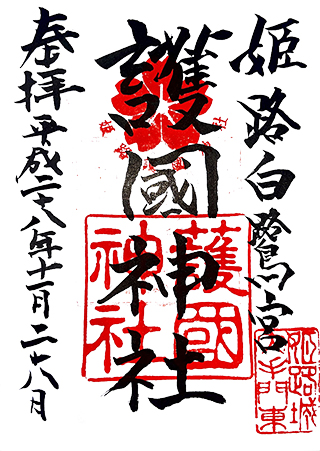 姫路白鷺宮
護國神社
奉拝 平成二十八年十一月二十八日
護國
神社
姫路城
門東